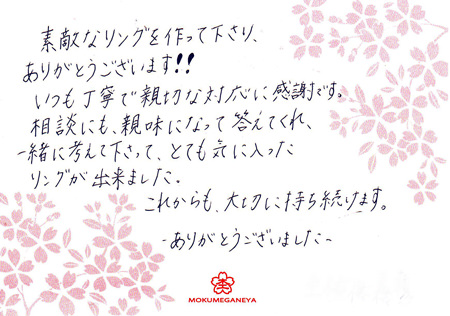 素敵なリングを作って下さり、
ありがとうございます!!
いつも丁寧で親切な対応に感謝です。
相談にも、親味になって答えてくれ、
一緒に考えて下さって、とても気に入った
リングが出来ました。
これからも、大切に持ち続けます。
-ありがとうございました-
MOKUMEGANEYA